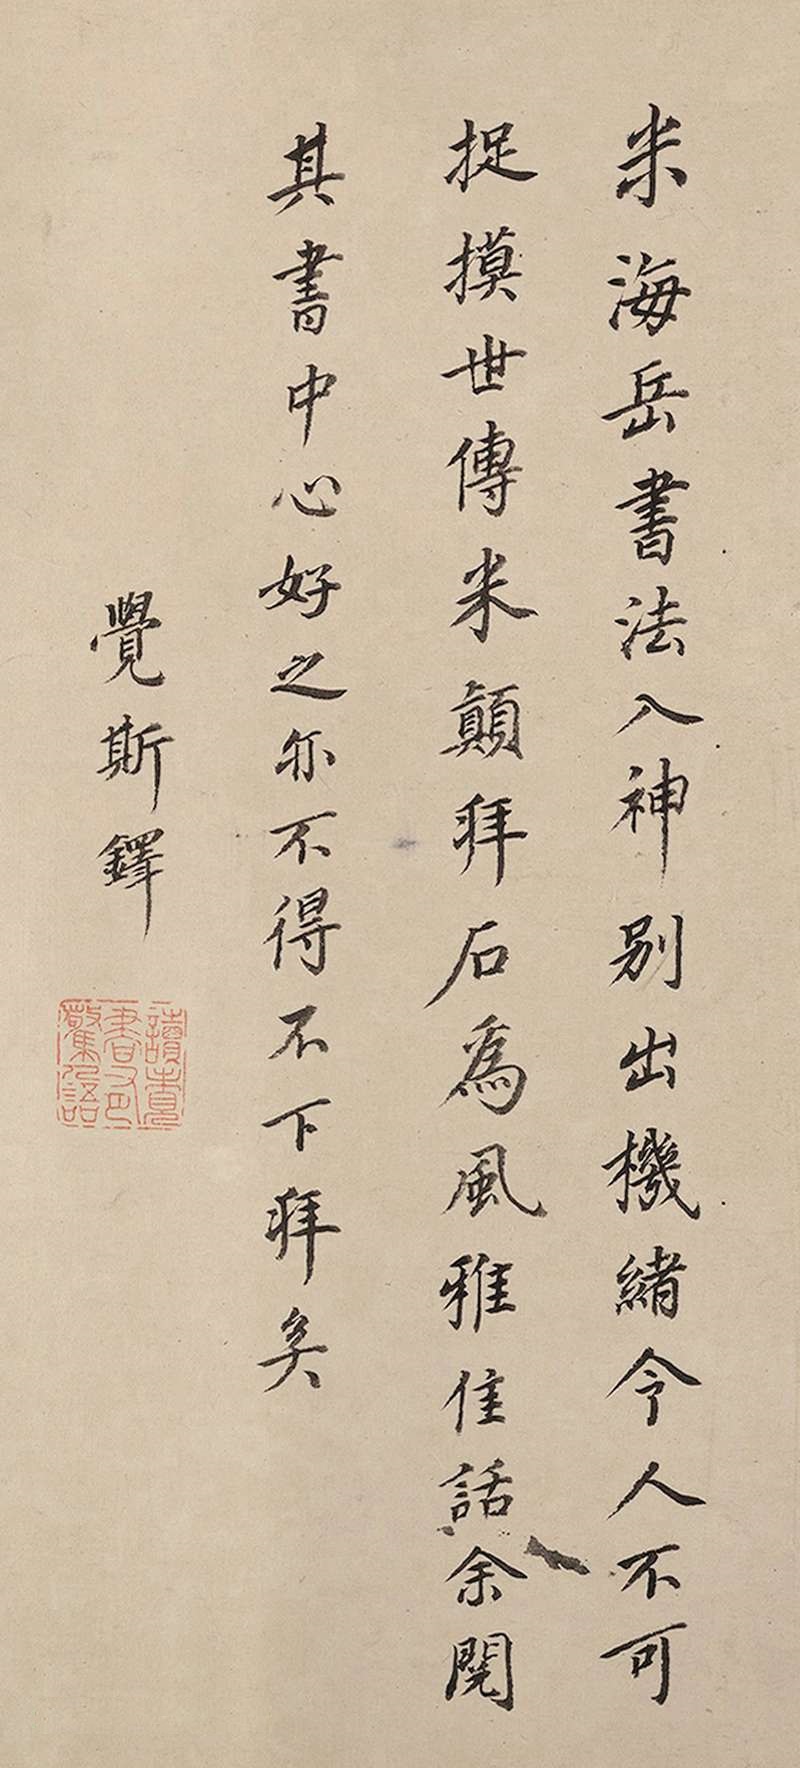 米海岳書法入神別出機緒令人不可
捉摸世傳米顛拜石為風雅佳話余閱
其書中心好之亦不得不下拜矣
覺斯鐸